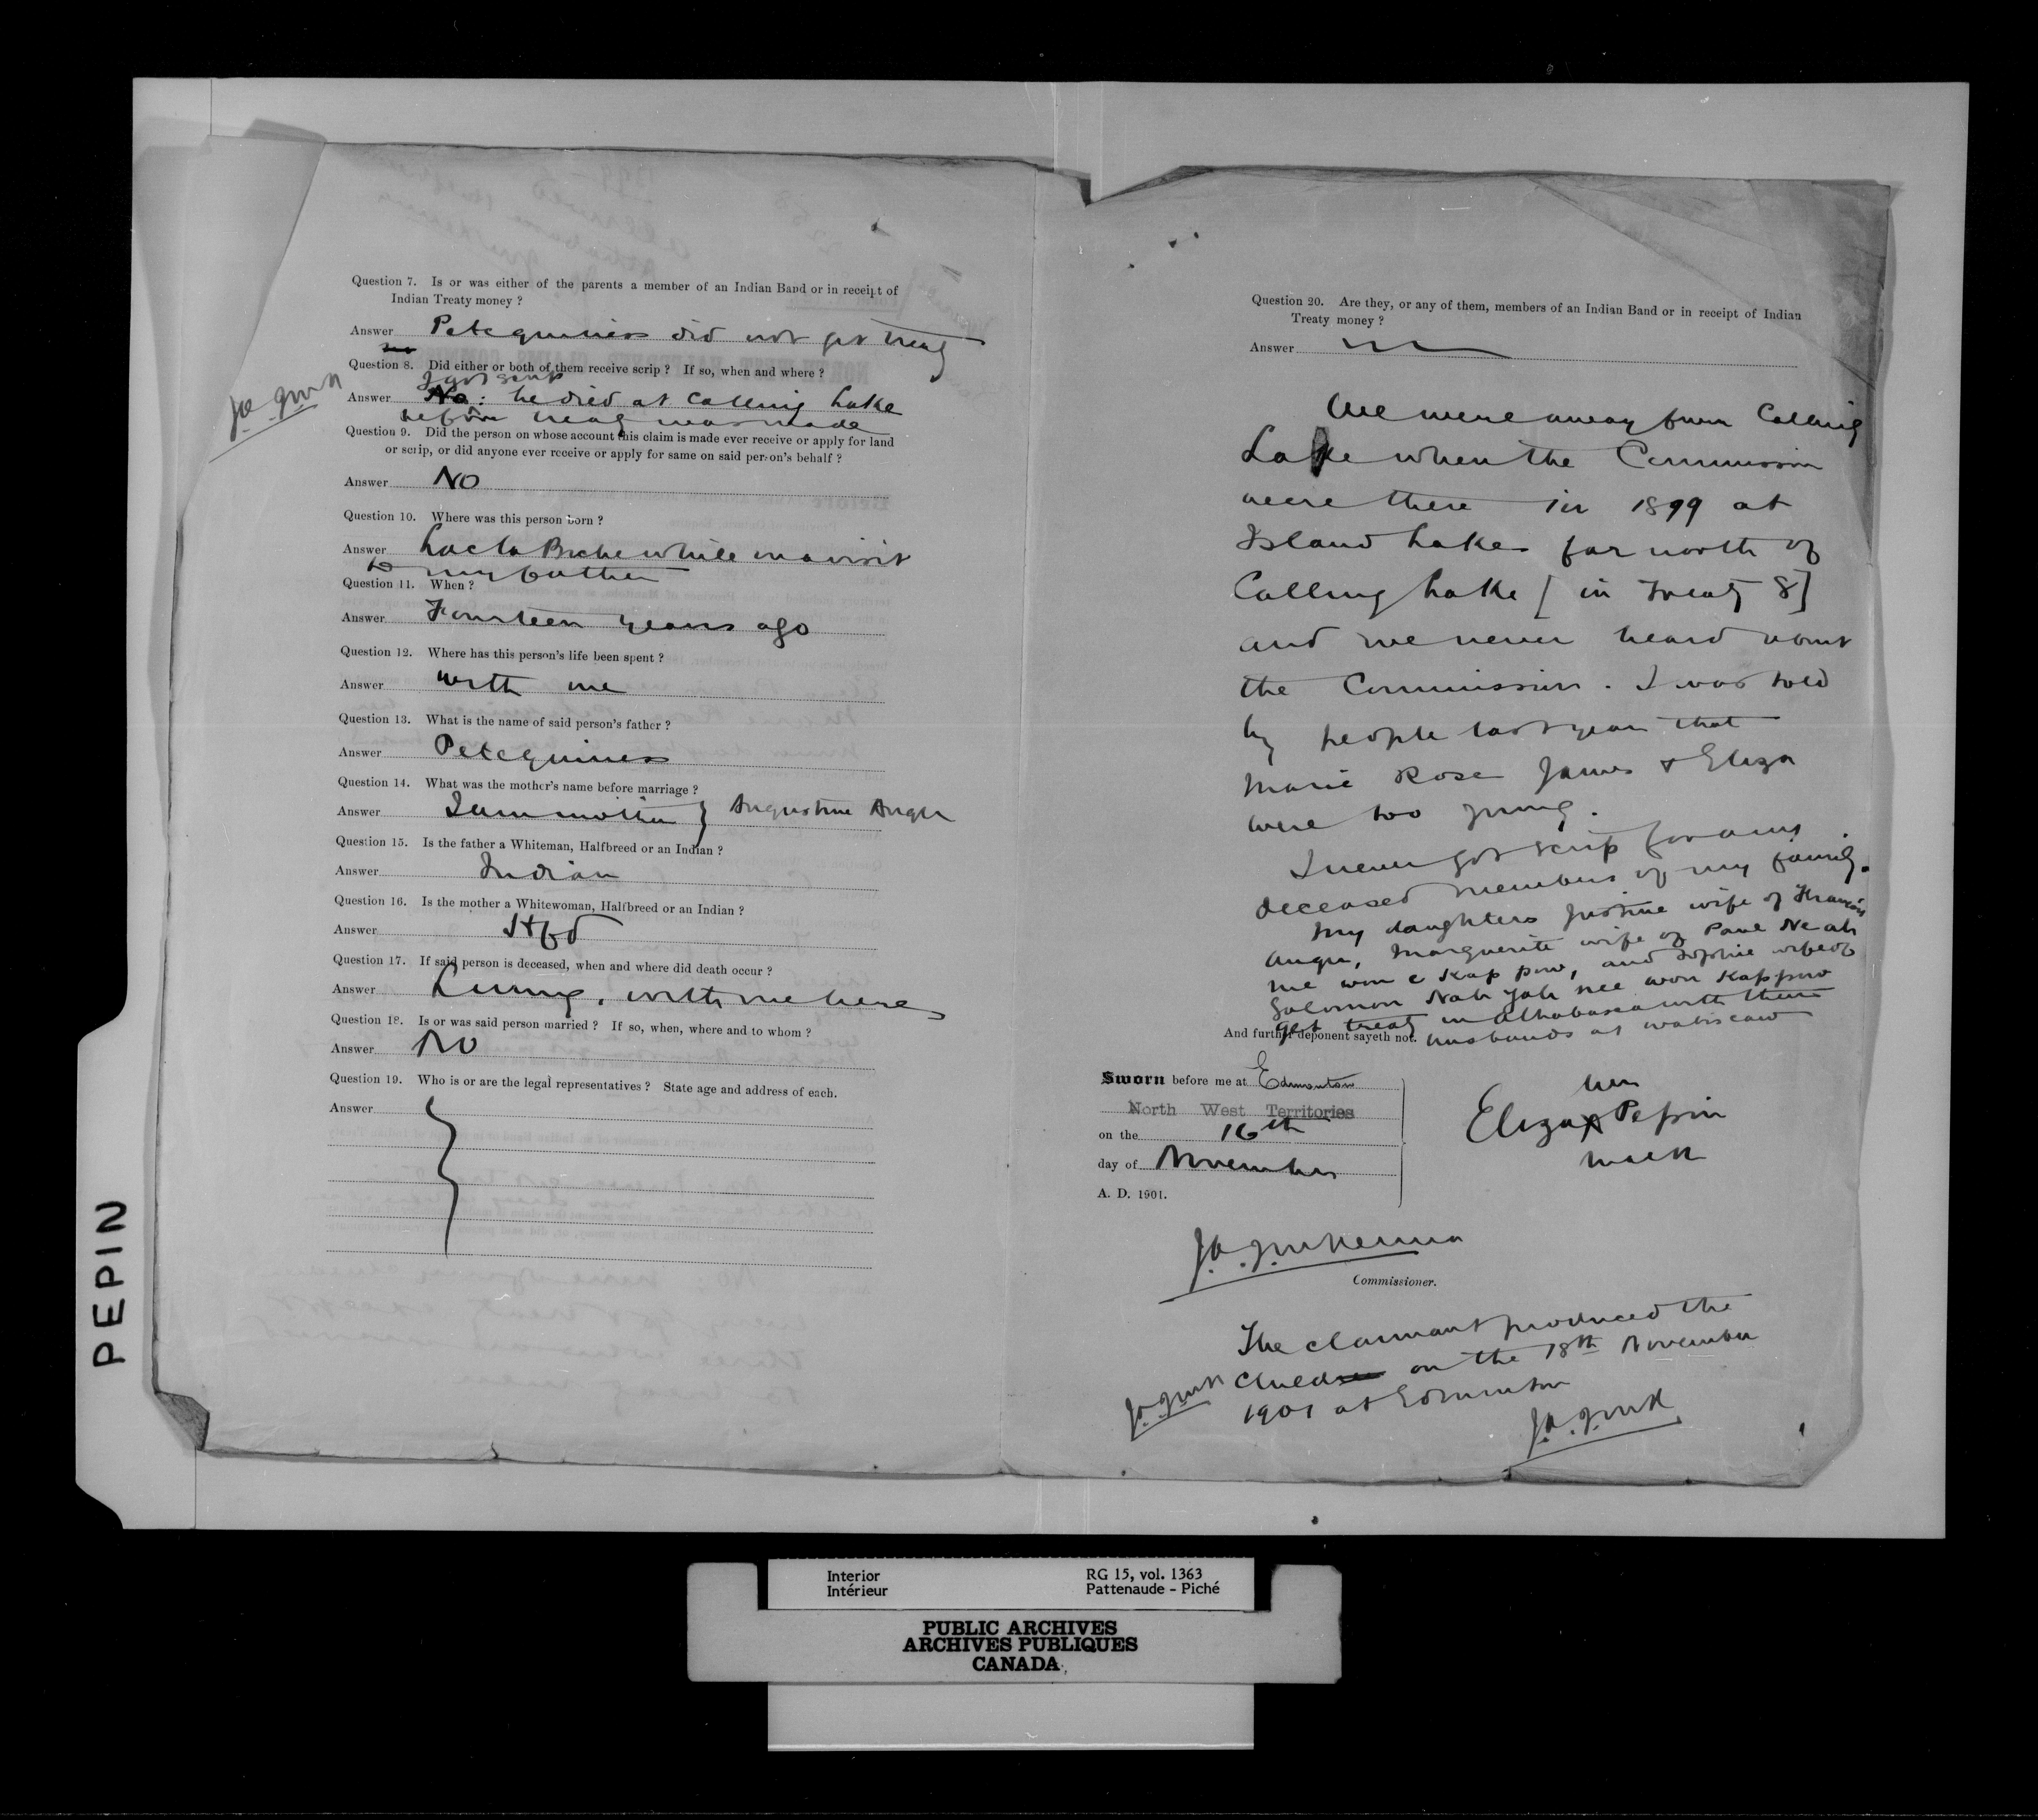 Question 7. Is or was either of the parents a member of an Indian Band or in receipt of
Indian Treaty money ?
Answer Petequiness did not get treaty
Question 8. Did either or both of them receive scrip ? If so, when and where ?
I got scrip
Answer No: he died at Calling Lake
before treaty was made
J.A.J.McK
Question 9. Did the person on whose account this claim is made ever receive or apply for land
or scrip, or did anyone ever receive or apply for same on said person's behalf ?
Answer No
Question 10. Where was this person born ?
Answer Lac la Biche while on a visit
to my father
Question 11. When ?
Answer Fourteen years ago
Question 12. Where has this person's life been spent ?
Answer with me
Question 13. What is the name of said person's father ?
Answer Petequiness
Question 14. What was the mother's name before marriage ?
Answer I am mother } Augustine Auger
Question 15. Is the father a Whiteman, Halfbreed or an Indian ?
Answer Indian
Question 16. Is the mother a Whitewoman, Halfbreed or an Indian ?
Answer Hfbd
Question 17. If said person is deceased, when and where did death occur ?
Answer Living, with me here
Question 18. Is or was said person married ? If so, when, where and to whom ?
Answer No
Question 19. Who is or are the legal representatives ? State age and address of each.
Answer
Question 20. Are they, or any of them, members of an Indian Band or in receipt of Indian
Treaty money ?
Answer
We were away from Calling
Lake when the Commission
were there in 1899 at
Island Lake far north of
Calling Lake [in Treaty 8]
and we never heard about
the Commission. I was told
by people last year that
Marie Rose James & Eliza
were too young.
I never got scrip for any
deceased members of my family.
My daughters Justine wife of Francois
Auger, Marguerite wife of Paul Ne ah
me won e Kap pow, and Sophie wife of
Solomon Nah yah nee won Kappow
get treaty in Athabasca with their
husbands at Wabiscaw
And further deponent sayeth not.
Sworn before me at Edmonton
North West Territories
on the 16th
day of November
A. D. 1901.
her
Eliza X Pepin
mark
J.A.J.McKenna
Commissioner.
The claimant produced the
J.A.J.McK Child on the 18th November
1901 at Edmonton
J.A.J.McK
PEPIN
Interior
Intérieur
RG 15, vol. 1363
Pattenaude - Piché
PUBLIC ARCHIVES
ARCHIVES PUBLIQUES
CANADA